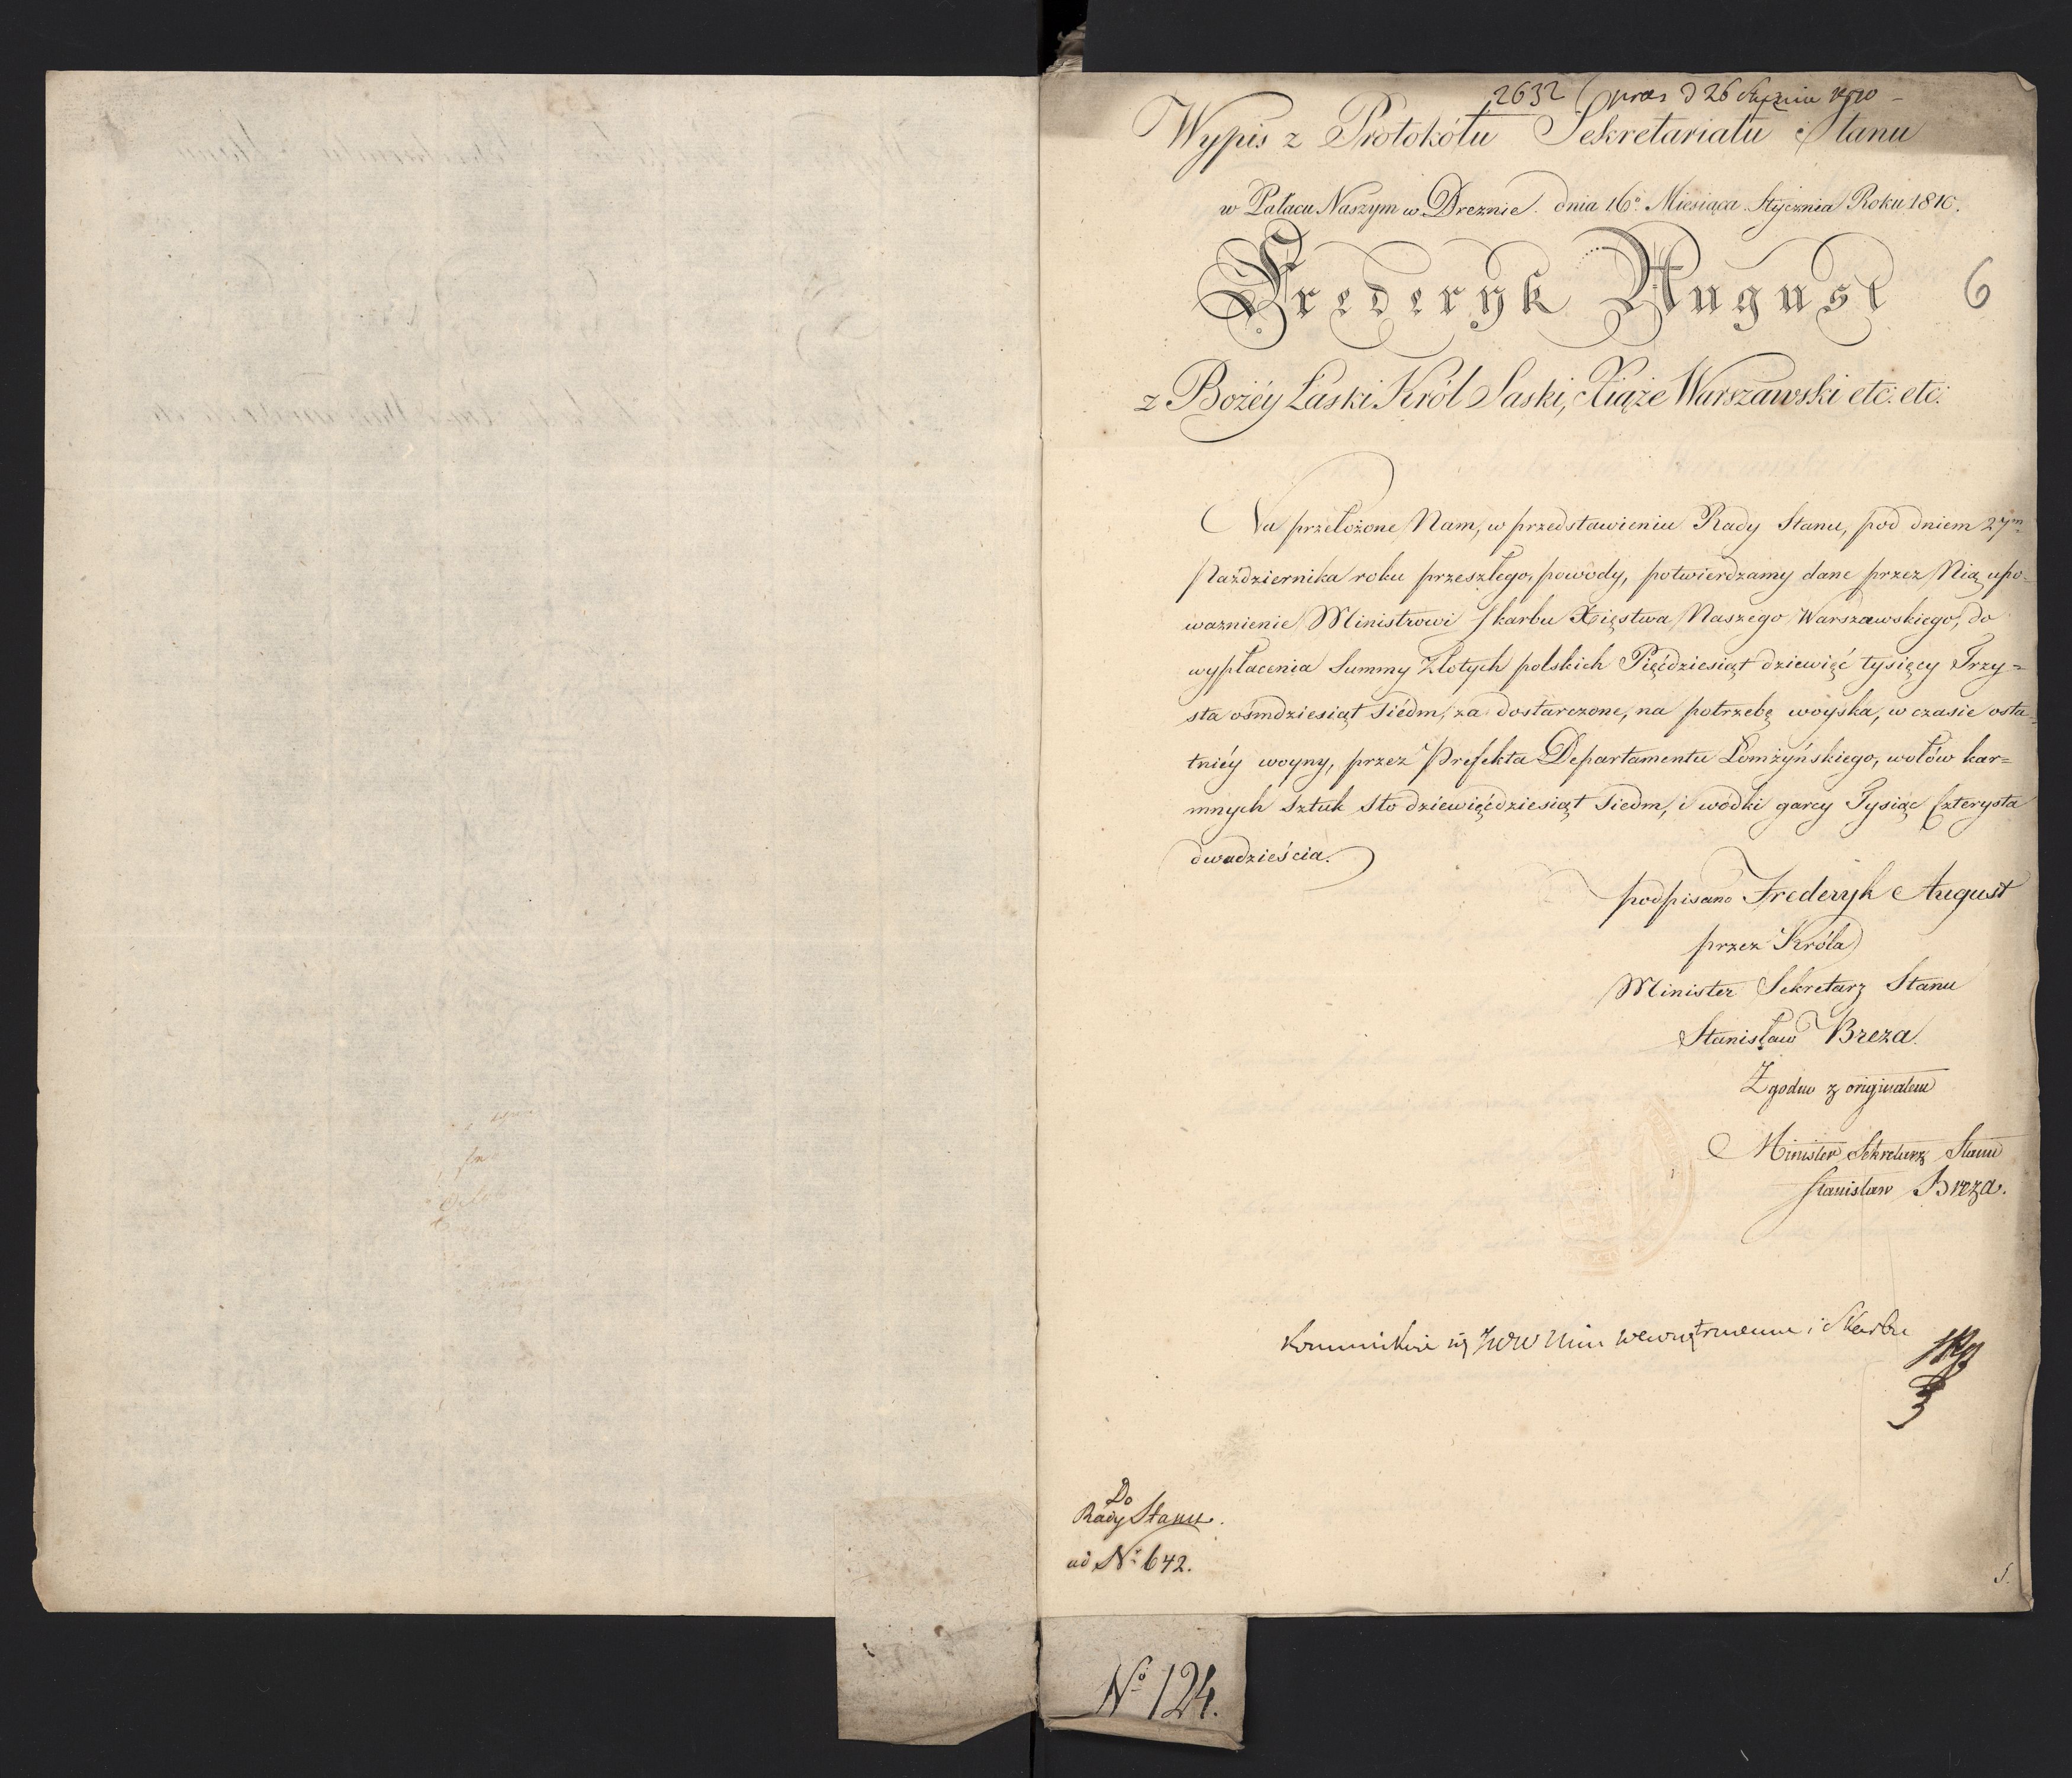 2632 praes d 26 Stycznia 1810
Wypis z Protokółu Sekretariatu Stanu
w Pałacu Naszym w Dreznie. dnia 16º Miesiąca Stycznia Roku 1810.
Frederyk August
6
z Bożéy Łaski Król Saski, Xiąże Warszawski etc: etc:
Na przełożone Nam, w przedstawieniu Rady Stanu, pod dniem 27m
Października roku przeszłego, powody, potwierdzamy dane przez Nią upo-
ważnienie Ministrowi Skarbu Xięstwa Naszego Warszawskiego, do
wypłacenia Summy Złotych polskich Pięćdziesiąt dziewięć tysięcy Trzy=
sta ośmdziesiąt siédm, za dostarczone, na potrzebę woyska, w czasie osta=
tniéy woyny, przez Prefekta Departamentu Łomżyńskiego, wołów kar=
mnych sztuk sto dziewięćdziesiąt siedm, i wódki garcy Tysiąc Czterysta
dwadzieścia.
podpisano Frederyk August
przez Króla
Minister Sekretarz Stanu
Stanisław Breza.
Zgodno z originałem
Minister Sekretarz Stanu
Stanisław Breza.
kommunikuie się JWW Min wewnętrznemu i Skarbu
Do
Rady Stanu.
ad Nº 642.
5.
Nº 124.